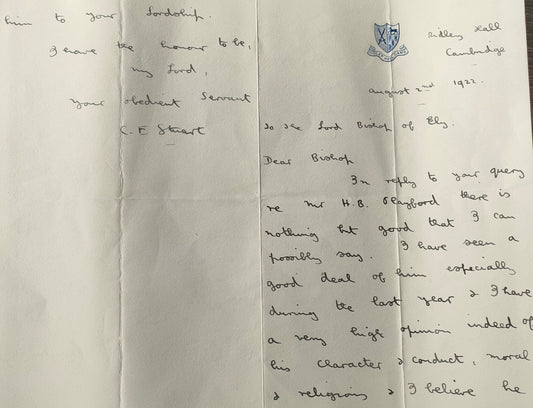 Ridley Hall
Cambridge
August 2nd 1922.
To the Lord Bishop of Ely.
Dear Bishop
In reply to your query
re Mr H.B. Playford there is
nothing but good that I can
possibly say. I have seen a
good deal of him especially
during the last year & I have
a very high opinion indeed of
his character & conduct, moral
& religious & I believe he
him to your Lordship.
I have the honour to be,
my Lord,
your obedient Servant
C. E Stuart